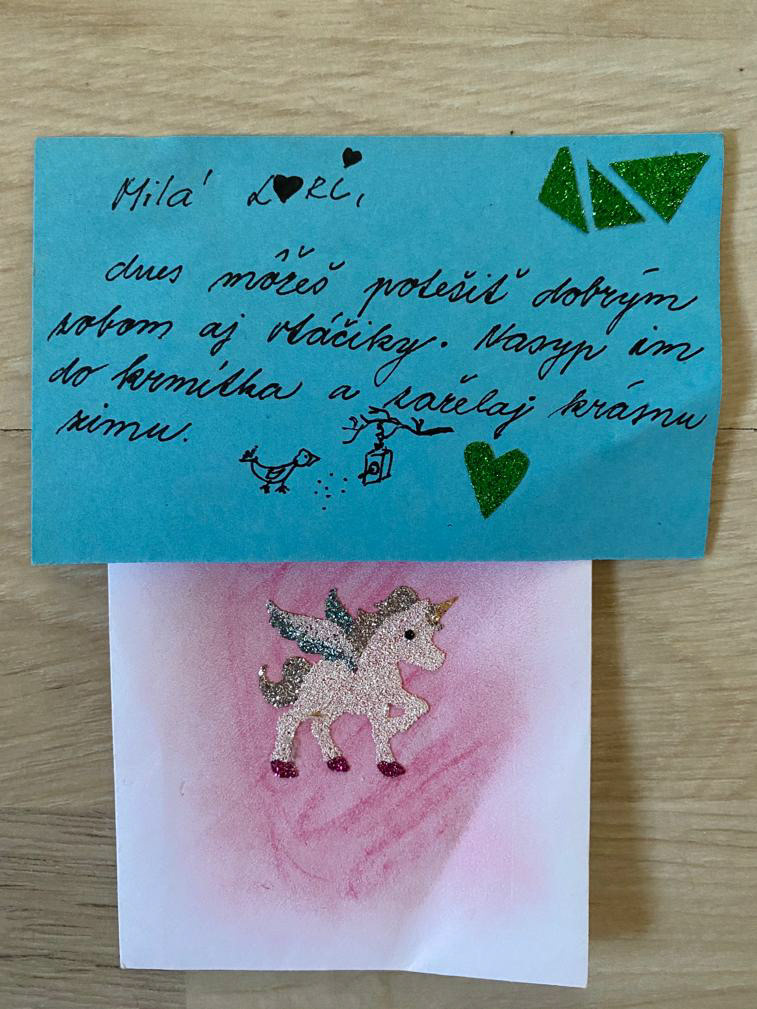 Milá LORI,
dnes môžeš potešiť dobrým
zobom aj vtáčiky. Nasyp im
do krmítka a zaželaj krásnu
zimu.